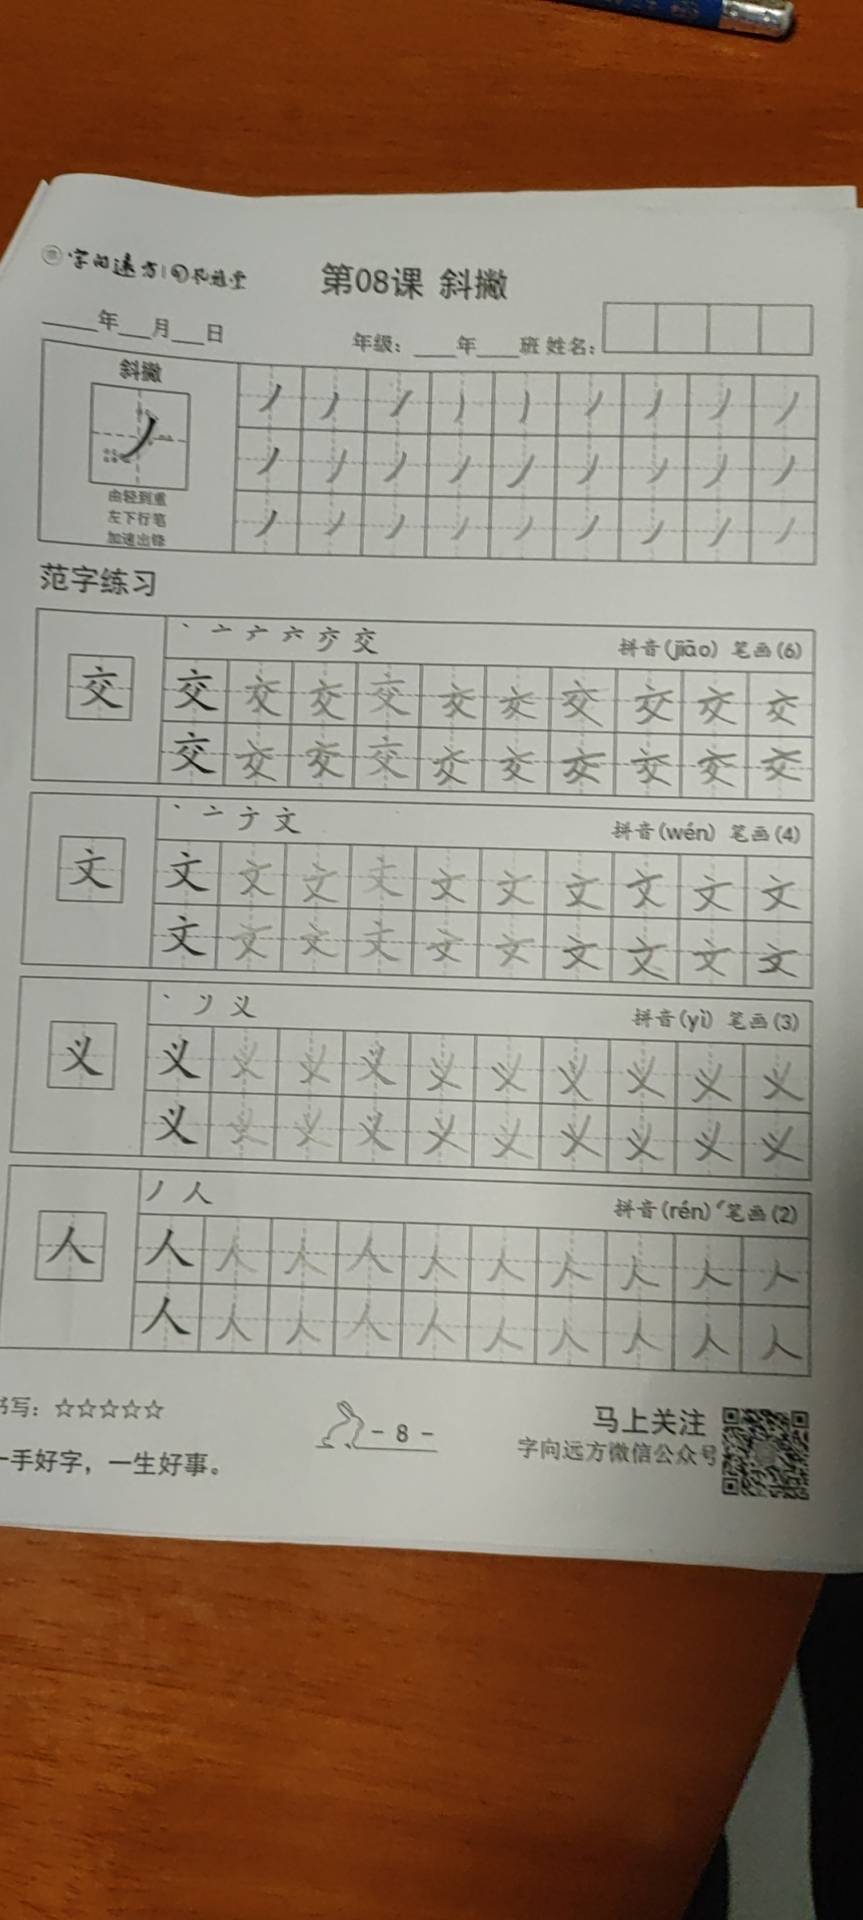 字向远方
第08课 斜撇
年 月 日
年级: 年 班 姓名:
斜撇
由轻到重
左下行笔
加速出锋
范字练习
丶 亠 六 交
拼音(jiāo) 笔画(6)
交
交 交 交 交 交 交 交 交 交 交
交 交 交 交 交 交 交 交 交 交
丶 亠 文
拼音(wén) 笔画(4)
文
文 文 文 文 文 文 文 文 文 文
文 文 文 文 文 文 文 文 文 文
丶 义
拼音(yì) 笔画(3)
义
义 义 义 义 义 义 义 义 义 义
义 义 义 义 义 义 义 义 义 义
丿 人
拼音(rén) 笔画(2)
人
人 人 人 人 人 人 人 人 人 人
人 人 人 人 人 人 人 人 人 人
书写: ☆☆☆☆☆
一手好字，一生好事。
- 8 -
马上关注
字向远方微信公众号